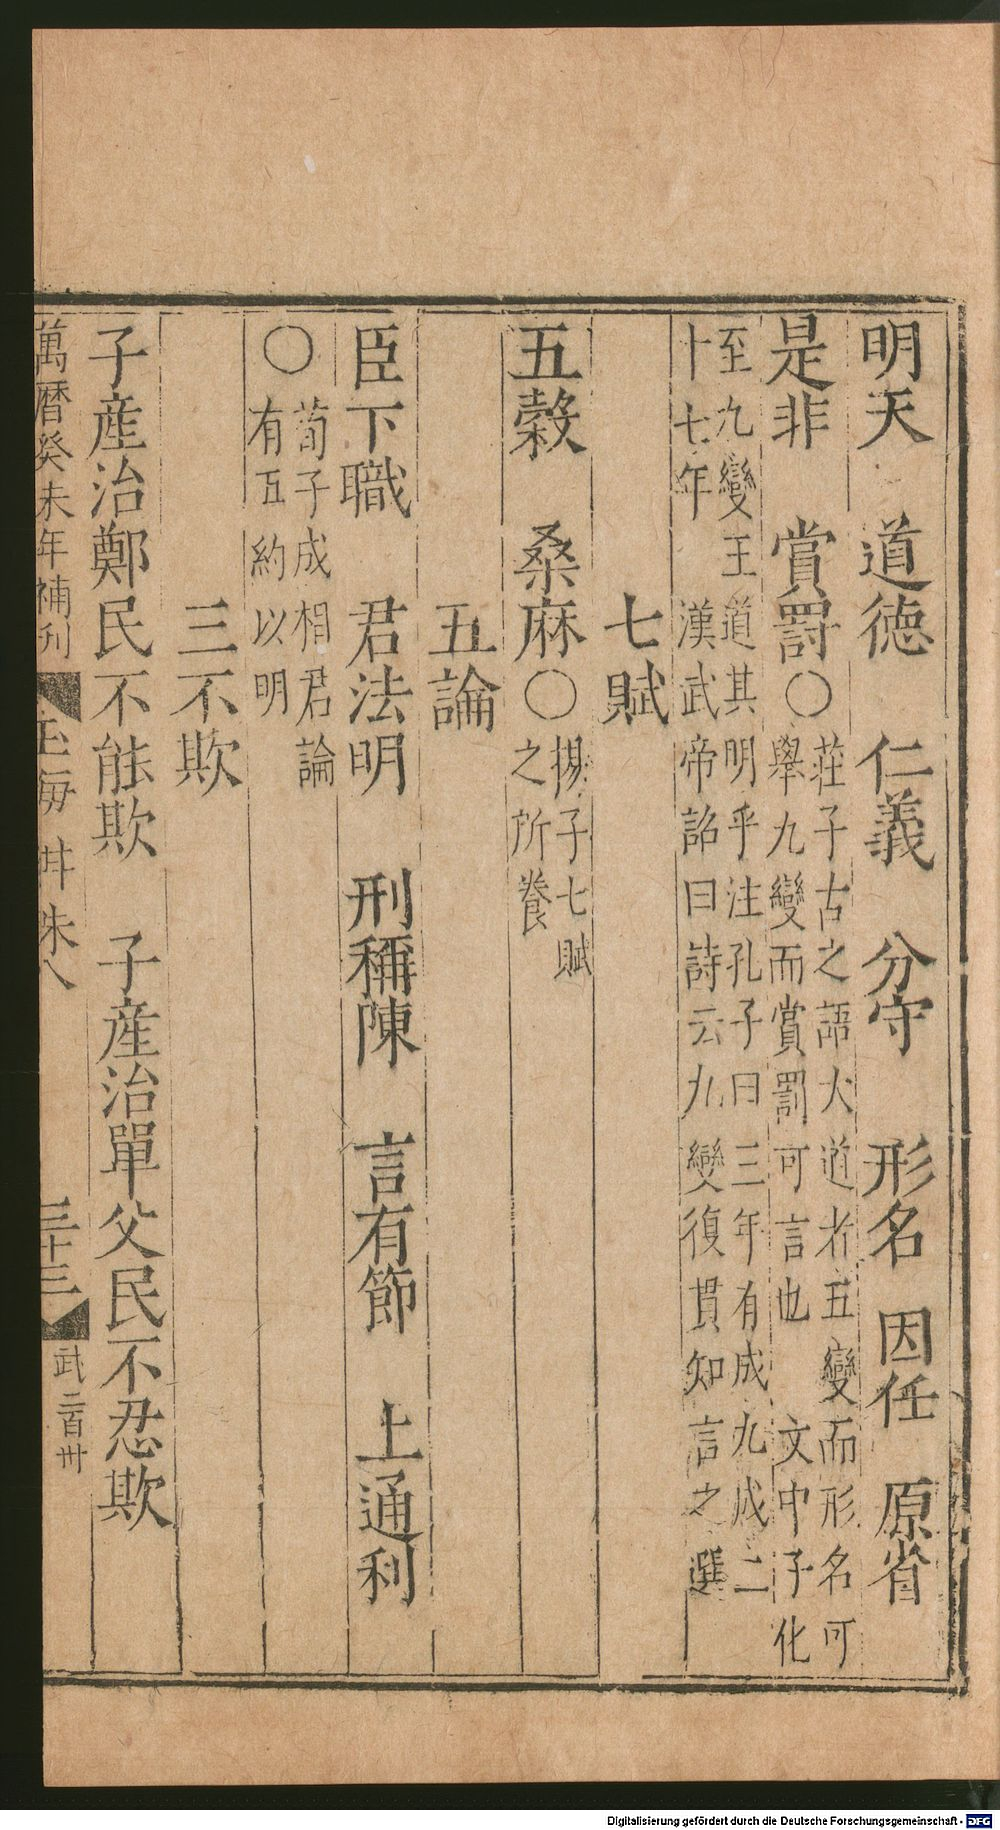 明天　道德　仁義　分守　形名　因任　原省
是非　賞罰○莊子古之語大道者五變而形名可
舉九變而賞罰可言也　文中子化
至九變王道其明乎注孔子曰三年有成九成二
十七年　漢武帝詔曰詩云九變復貫知言之選
七賦
五穀　桑麻○揚子七賦
之所養
五論
臣下職　君法明　刑稱陳　言有節　上通利
○荀子成相君論
有五約以明
三不欺
子産治鄭民不能欺　子産治單父民不忍欺
萬曆癸未年補刊　玉海　卅　朱八　三十三　武二百卅
Digitalisierung gefördert durch die Deutsche Forschungsgemeinschaft - DFG